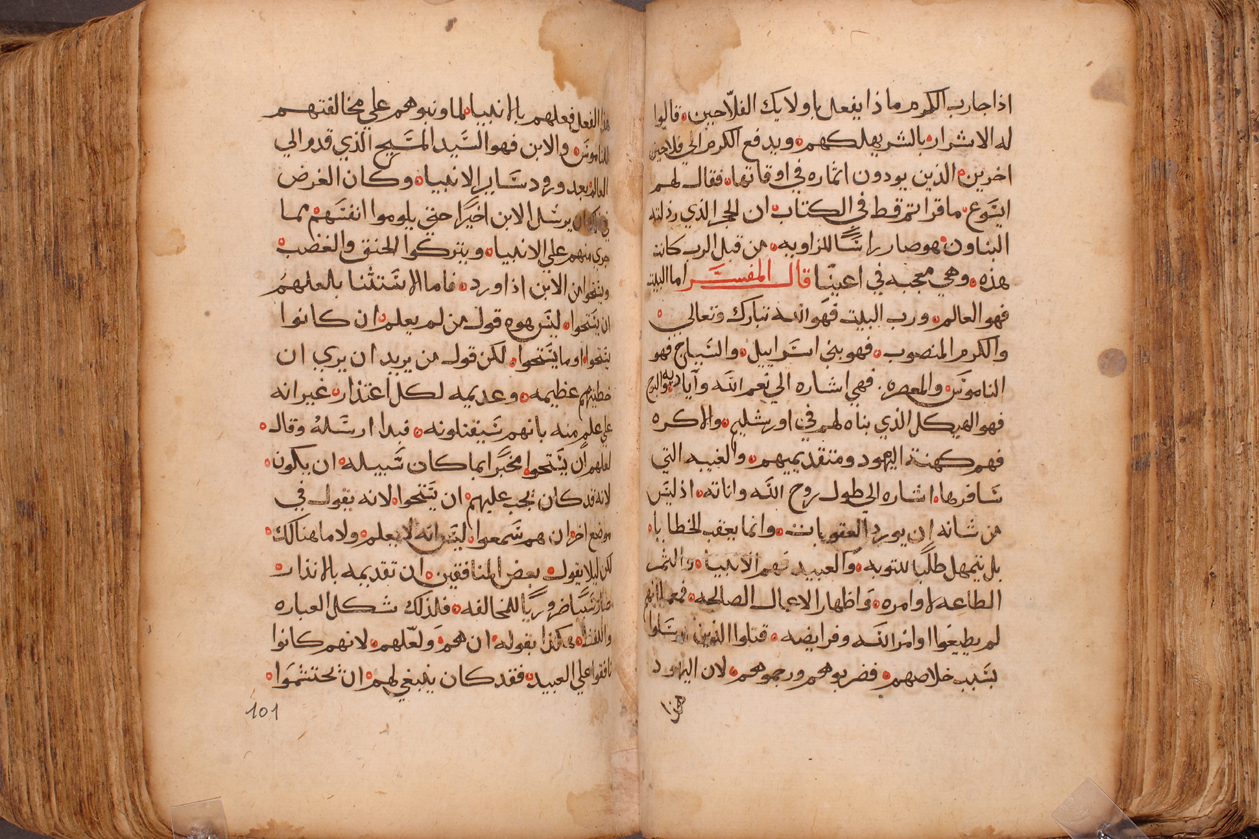 اذا جا رب الكرم ماذا يفعل باولايك الفلاحين قالوا
له الاشرار بالشر يهلكهم ويدفع الكرم الي فلاحين
اخرين الذين يودون اثماره في اوقاتها فقال لهم
ايشوع ما قراتم قط في الكتاب ان الحجر الذي رذلته
البناون هو صار راسًا للزاويه من قبل الرب كانت
هذه وهي معجبه في اعيننا قال المفسر اما البيت
فهو العالم ورب البيت فهو الله تبارك وتعالي
والكرم المنصوب فهو بني اسراييل والسياج فهو
الناموس والمعصره فهي اشاره الي نعم الله واياديه والبرج
فهو الهيكل الذي بناه لهم في اورشليم والاكره
فهم كهنة اليهود ومتقدميهم والغيبه التي
سافرها اشاره الي طول روح الله واناته اذ ليس
من شانه ان يورد العقوبات وانما يعقب الخطايا
بل يتمهل طلبًا للتوبه والعبيد فهم الانبيا والثمر
الطاعه لاوامره واظهار الاعمال الصالحه
لم يطيعوا اوامر الله وفرايضه قتلوا الذين ارسلوا
بسبب خلاصهم فضربوهم ورجموهم لان اليهود
هذا
هذا الفعل فعلهم بالانبيا لما ونبوهم علي مخالفتهم
للناموس والابن فهو السيد المسيح الذي قدم الي
العالم بعد ورود ساير الانبيا وكان الغرض
في ان يرسل الابن اخيرًا حتي يلوموا انفسهم بما
جري منهم علي الانبيا ويتركوا الحنق والغضب
ويستحوا من الابن اذا ورد فاما الاستثنا بلعلهم
ان يستحوا ليس هو قول من لم يعلم ان كانوا
يستحوا او ما يستحوا لكن قول من يريد ان يري ان
خطيتهم عظيمه وعديمه لكل اعتذار غير انه
علي علم منه بانهم سيقتلونه فبدا ارسله وقال
لعلهم ان يستحوا مخبرًا بما كان سبيله ان يكون
لانه قد كان يجب عليهم ان يستحوا لانه يقول في
موضع اخر ان هم سمعوا ليس انه لا يعلم ولا ما هنالك
لكن ليلا يقول بعض المنافقين ان تقديمه بالانذار
صار سببًا ضروريًا للمخالفه فلذلك شكل العباره
واللفظ هكذا بقوله ان هم ولعلهم لانهم كانوا
نافقوا علي العبيد فقد كان ينبغي لهم ان يحتشموا
101